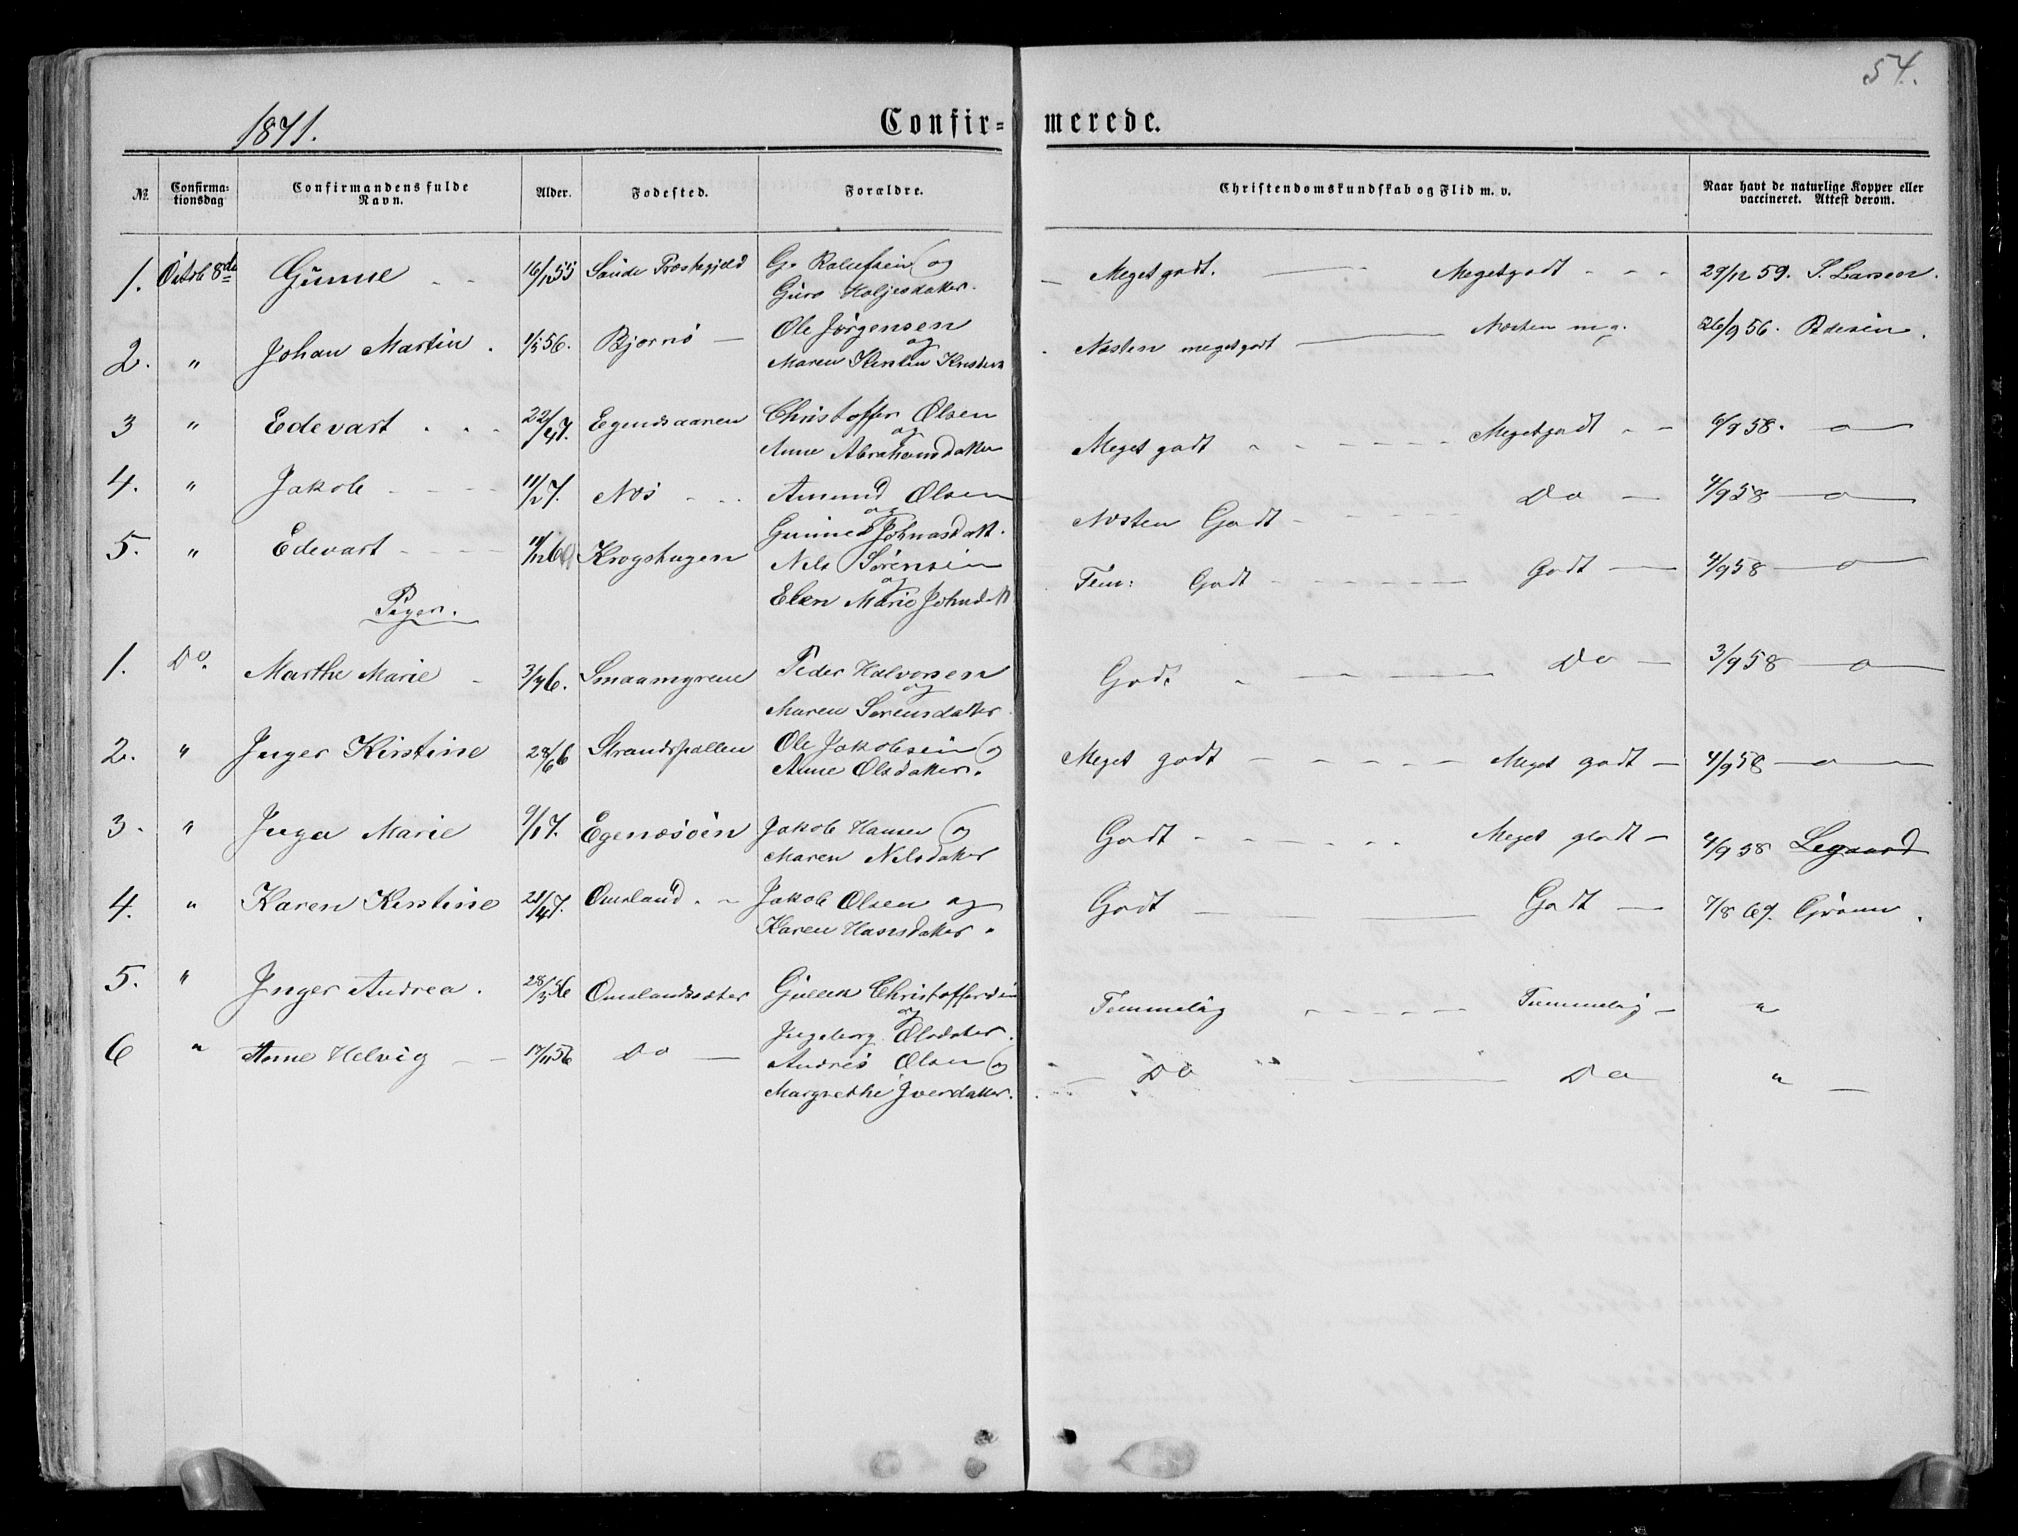 54.
1871.
Confir= merede.
№ Confirma- tionsdag Confirmandens fulde Navn. Alder. Fodested. Forældre. Christendomskundskab og Flid m. v. Naar havt de naturlige Kopper eller vaccineret. Attest derom.
1. Octob 8de Gunne 16/12 55 Sande Præstegjeld og Guro Holjesdatter. Meget godt. Megetgodt 29/12 59. S. Larsen.
2. " Johan Martin. 1/5 56. Bjornö Ole Jörgensen og Maren Kirstin Næsten megetgodt Næsten m.g. 26/9 56.
3 " Edevart Christoffer Olsen og Anne Abrahamsdatter Meget godt Megetgodt 6/9 58. "
4. " Jakob Næs Amund Olsen og Johnasdatt. Næsten Godt Do 4/9 58 "
5. " Edevart Krogshagen Nils Sörensen og Elen Marie Johnsdatt Tem: Godt Godt 4/9 58 "
Piger.
1. Do. Marthe Marie Smaamyrene Peder Halvorsen og Maren Sörensdatter Godt Do 3/9 58 "
2. " Inger Kirstine 28/6 6 Strandspallen Ole Jakobsen og Anne Olsdatter. Meget godt Meget godt 4/9 58 "
3. " Inga Marie 9/1 7. Jakob Hansen og Maren Nilsdatter Godt Meget godt 4/9 58 Legaard
4. " Karen Kirstine 21/4 7. Omsland Jakob Olsen og Karen Hansdatter Godt Godt 7/8 69.
5. " Inger Andrea. 28/3 56 Omslandsæter Gullek Christoffersen og Ingeborg Olsdater. Temmelig Temmelig "
6 " Anne Helvig 17/11 56 Do Andres Olsen og Margrethe Iverdatter. Do Do "